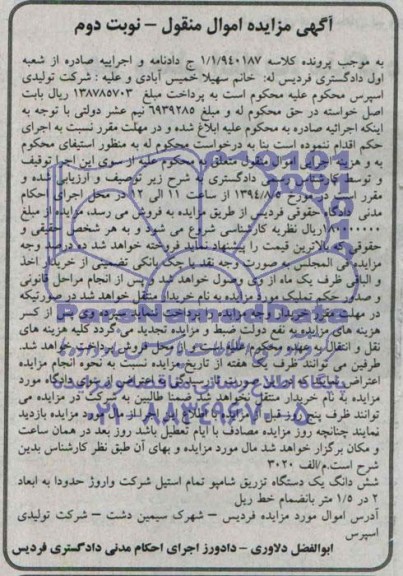 آگهی مزایده اموال منقول – نوبت دوم
به موجب پرونده کلاسه ۱/۱/۹۴۰۱۸۷ ج دادنامه و اجراییه صادره از شعبه
اول دادگستری فردیس له: خانم سهیلا خمیس آبادی و علیه : شرکت تولیدی
اسپرس محکوم علیه محکوم است به پرداخت مبلغ ۱۳۸۷۸۵۷۰۳ ریال بابت
اصل خواسته در حق محکوم له و مبلغ ۶۹۳۹۲۸۵ نیم عشر دولتی با توجه به
اینکه اجرائیه صادره به محکوم علیه ابلاغ شده و در مهلت مقرر نسبت به اجرای
حکم اقدام ننموده است بنا به درخواست محکوم له به منظور استیفای محکوم
به و هزینه اجرایی اموال منقول متعلق به محکوم علیه از سوی این اجرا توقیف
و توسط کارشناس رسمی دادگستری به شرح زیر توصیف و ارزیابی شده و
مقرر است در مورخ ۱۳۹۴/۸/۵ از ساعت ۱۱ الی ۱۲ در محل اجرای احکام
مدنی دادگاه حقوقی فردیس از طریق مزایده به فروش می رسد، مزایده از مبلغ
ریال نظریه کارشناسی شروع می شود و به هر شخص حقیقی و
حقوقی که بالاترین قیمت را پیشنهاد نماید فروخته خواهد شد ده درصد وجه
مزایده فی المجلس به صورت وجه نقد یا چک بانکی تضمینی از خریدار اخذ
و الباقی ظرف یک ماه از وی وصول خواهد شد و پس از انجام مراحل قانونی
و صدور حکم تملیک مورد مزایده به نام خریدار منتقل خواهد شد در صورتیکه
در مهلت مقرر خریدار وجه مزایده را پرداخت ننماید سپرده وی پس از کسر
هزینه های مزایده به نفع دولت ضبط و مزایده تجدید می گردد کلیه هزینه های
نقل و انتقال به عهده محکوم علیه است و از محل فروش پرداخت خواهد شد.
طرفین می توانند ظرف یک هفته از تاریخ مزایده نسبت به نحوه انجام مزایده
اعتراض نمایند که در این صورت تا رسیدگی به اعتراض از سوی دادگاه مورد
مزایده به نام خریدار منتقل نخواهد شد ضمنا طالبین به شرکت در مزایده می
توانند ظرف پنج روز قبل از مزایده با اطلاع این اجرا از مال مورد مزایده بازدید
نمایند چنانچه روز مزایده مصادف با ایام تعطیل باشد روز بعد در همان ساعت
و مکان برگزار خواهد شد مال مورد مزایده و بهای آن طبق نظر کارشناس بدین
شرح است.م/الف ۳۰۲۰
شش دانگ یک دستگاه تزریق شامپو تمام استیل شرکت واروژ حدودا به ابعاد
۲ در ۱/۵ متر بانضمام خط ریل
آدرس اموال مورد مزایده فردیس – شهرک سیمین دشت – شرکت تولیدی
اسپرس
ابوالفضل دلاوری – دادورز اجرای احکام مدنی دادگستری فردیس
ParsNamadData
۰۲۱-۸۸۳۴۹۶۷۰-۵